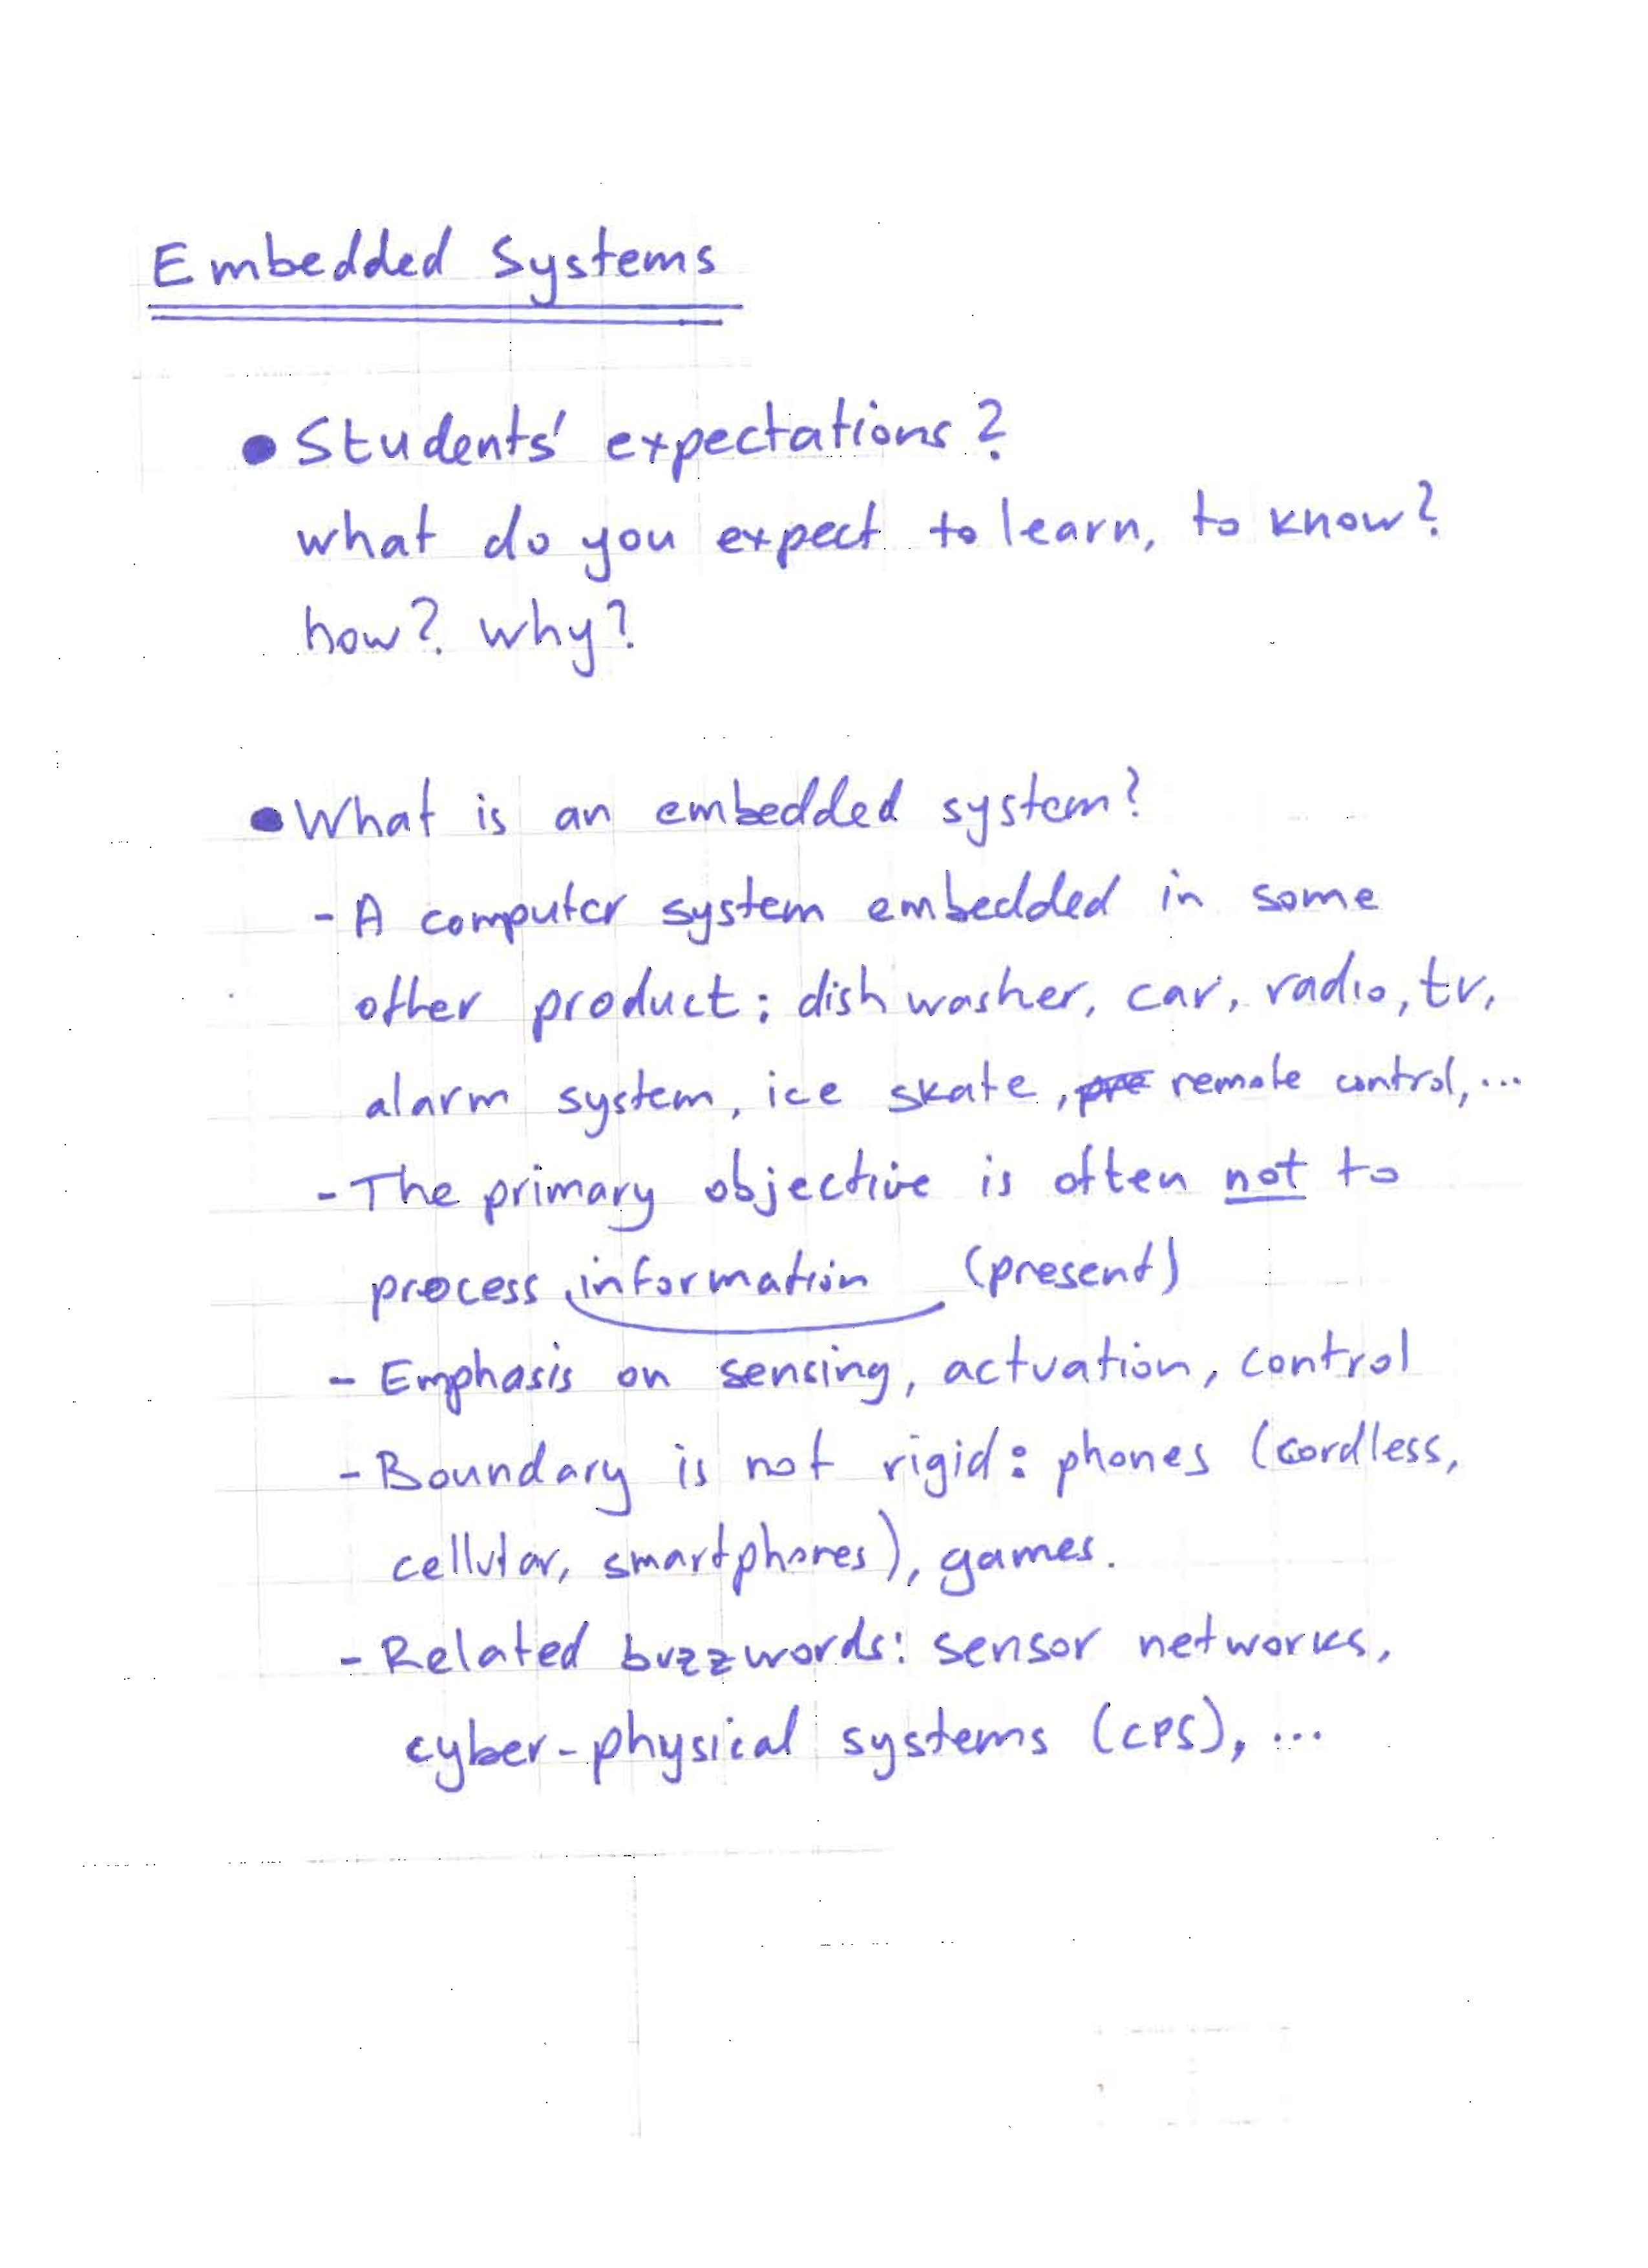 Embedded Systems
● Students' expectations?
what do you expect to learn, to know?
how? why?
● What is an embedded system?
- A computer system embedded in some
other product: dish washer, car, radio, tv,
alarm system, ice skate, remote control, ...
- The primary objective is often not to
process information (present)
- Emphasis on sensing, actuation, control
- Boundary is not rigid: phones (cordless,
cellular, smartphones), games.
- Related buzzwords: sensor networks,
cyber-physical systems (CPS), ...